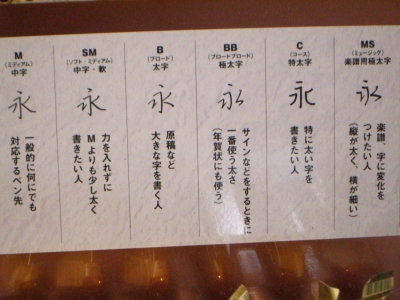 M
(ミディアム)
中字
永
一般的に何にでも
対応するペン先
SM
(ソフト・ミディアム)
中字・軟
永
力を入れずに
Mよりも少し太く
書きたい人
B
(ブロード)
太字
永
原稿など
大きな字を書く人
BB
(ブロードブロード)
極太字
永
サインなどをするときに
一番使う太さ
(年賀状にも使う)
C
(コース)
特太字
永
特に太い字を
書きたい人
MS
(ミュージック)
楽譜用極太字
永
楽譜、字に変化を
つけたい人
(縦が太く、横が細い)